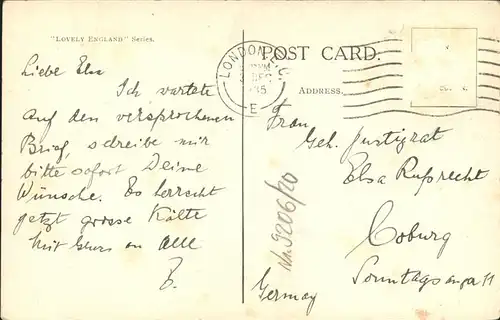 "LOVELY ENGLAND" Series.
Liebe Elsa
Ich wartete
auf den versprochenen
Brief, schreibe mir
bitte sofort Deine
Wünsche. Es herrscht
jetzt grosse Kälte
mit an alle
LONDON
DEC
35
E
POST CARD.
ADDRESS.
Frau
Geh. Justizrat
Elsa Ruprecht
Coburg
Sonntagsanger 11
Germany
Nr. 9206/20